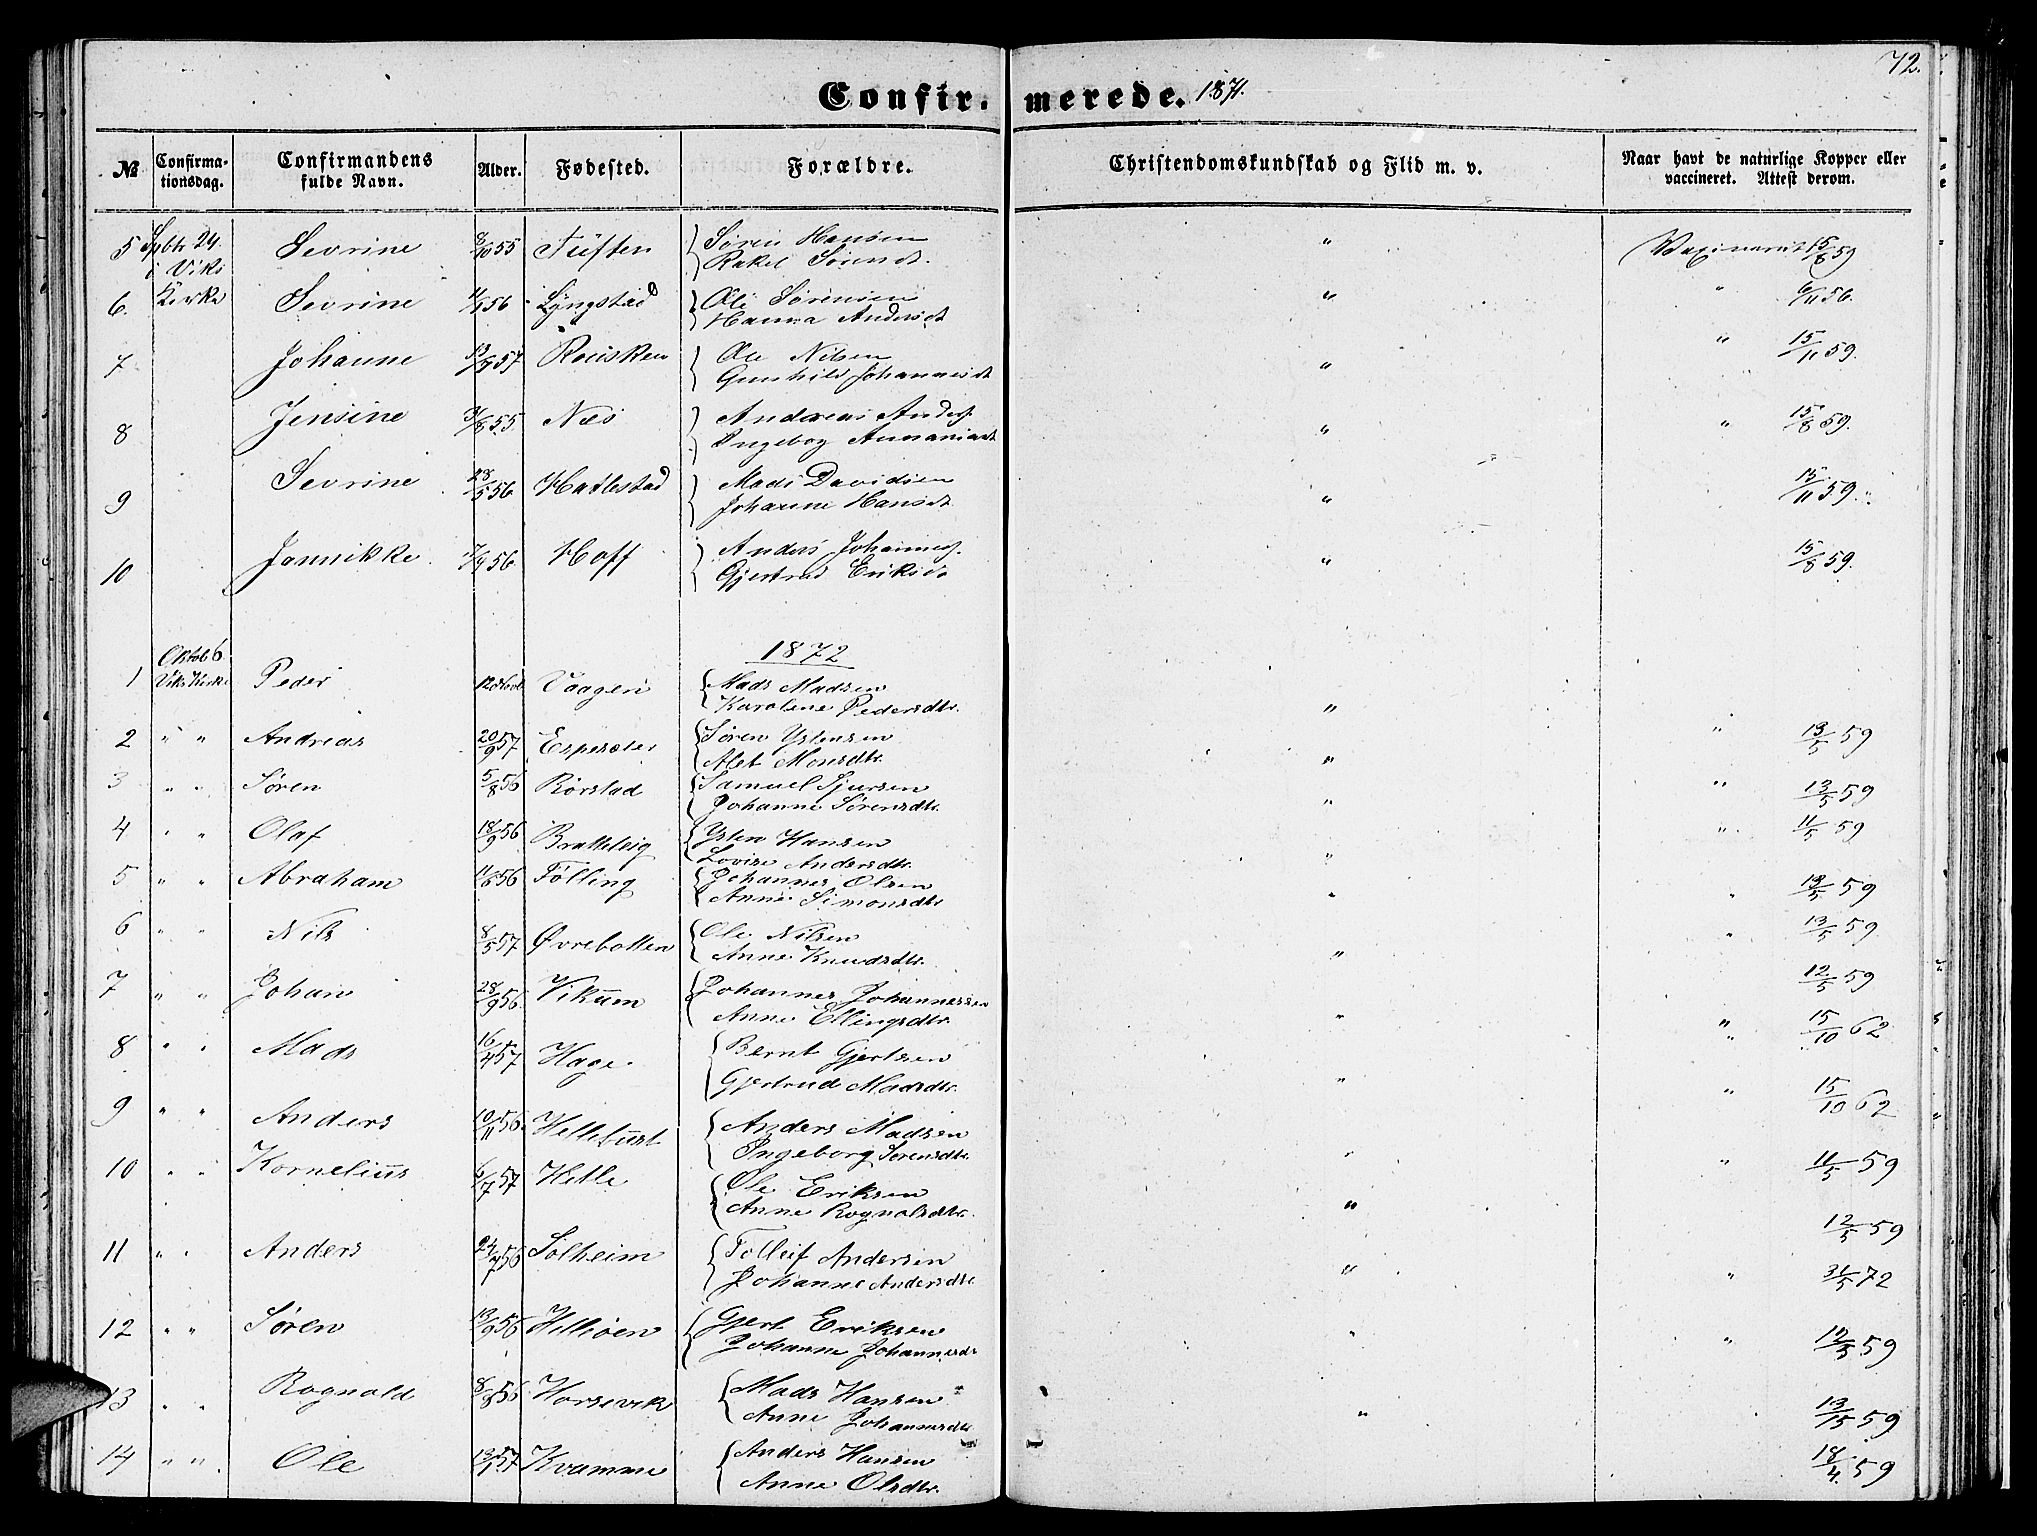 72.
Confir- merede. 1871.
№ Confirma-tionsdag. Confirmandens fulde Navn. Alder. Fødested. Forældre. Christendomskundskab og Flid m. v. Naar havt de naturlige Kopper eller vaccineret. Attest derom.
5 Sptbr 24. i Viks Sevrine 8/10 55 Tuften Søren Hansen " 15/8 59
Rakel Sørensdt.
6. Kirke Sevrine 56 Lyngstad Ole Sørensen " " 6/11 56.
Hanna Andersdt
7 Johanne 57 Rousken Ole Nilsen " " 15/11 59.
Gunhild Johannesdt
8 Jensine 3/8 55 Næs Andreas Anders. " " 15/8 59.
Ingebog
9 Sevrine 28/5 56 Hatlestad Mads Davidsen " 15/11 59.
Johanne Hansdt.
10 Jannikke 7/9 56 Hoff Anders Johannes. " 15/8 59.
Gjertrud Eriksdt
1872
1 Oktob 6 Viks Kirke Peder Vaagen Mads Madsen "
Karolene Pedersdtr.
2 " " Andreas 20/9 57 Espesæter Søren Ystensen " " 13/5 59
Alet Monsdtr.
3 " " Søren 5/8 56 Rørstad Samuel Sjursen " " 13/5 59
Johanne Sørensdtr.
4 " " Olaf 18/9 56 Bratteleig Ysten Hansen " " 11/5 59
Lovise Andersdtr.
5 " " Abraham 11/8 56 Tølling Johannes Olsen " " 13/5 59
Anne Simonsdtr
6 " " Nils 8/5 57 Øvrebotten Ole Nilsen " " 13/5 59
Anne Knudsdtr.
7 " " Johan 28/9 56. Vikum Johannes Johannessen " 12/5 59
Anne Ellingsdtr.
8 " " Mads 16/4 57 Hage. Bernt Gjertsen " " 15/10 62
Gjertrud Madsdtr.
9 " " Anders 10/11 56. Hellebust Anders Madsen " " 15/10 62
Ingeborg Sørensdtr
10 " " Kornelius 6/7 57 Helle Ole Eriksen " " 11/5 59
Anne Rognalsdtr.
11 " " Anders 24/7 56 Solheim Tolleif Andersen " 12/5 59
Johanne Andersdtr.
12 " " Søren 13/9 56 Helliøen Gjert Eriksen " " 31/5 72
Johanne Johannesdr
13 " " Rognald 8/8 56 Horsevik Mads Hansen " " 12/5 59
Anne Johannesdtr
14 " " Ole 57 Kvamme Anders Hansen 13/15 59
Anne Olsdtr. 18/4. 59